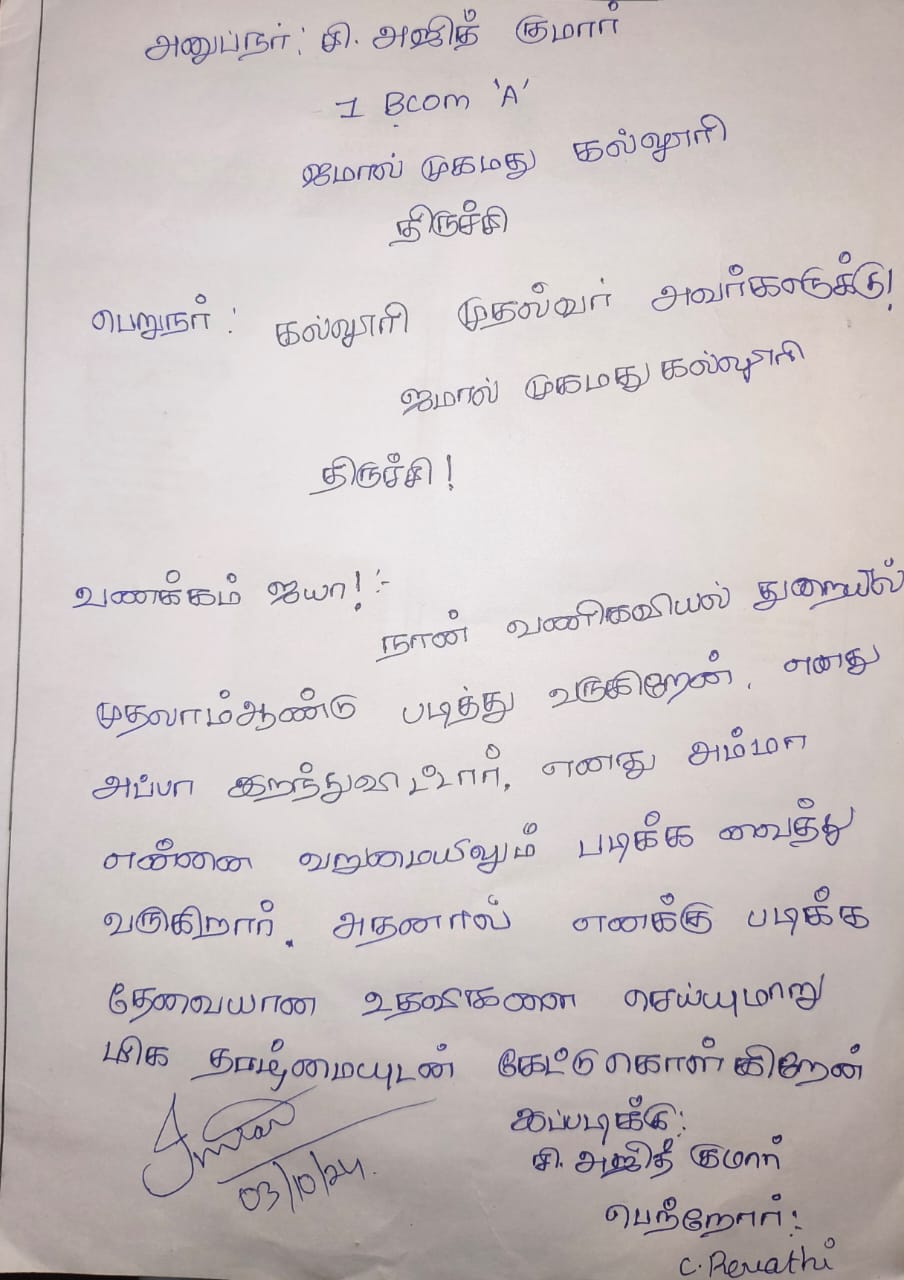 அனுப்நர்: சி. அஜித் குமார்
1 Bcom 'A'
ஜமால் முகமது கல்லூரி
திருச்சி
பெறுநர்: கல்லூரி முதல்வர் அவர்களுக்கு!
ஜமால் முகமது கல்லூரி
திருச்சி!
வணக்கம் ஐயா!:-
நான் வணிகவியல் துறையில்
முதலாம்ஆண்டு படித்து வருகிறேன். எனது
அப்பா இறந்துவிட்டார். எனது அம்மா
என்னை வறுமையிலும் படிக்க வைத்து
வருகிறார். அதனால் எனக்கு படிக்க
தேவையான உதவிகளை செய்யுமாறு
மிக தாழ்மையுடன் கேட்டு கொள்கிறேன்
இப்படிக்கு:
சி. அஜித் குமார்
03/10/24.
பெற்றோர்:
C. Revathi